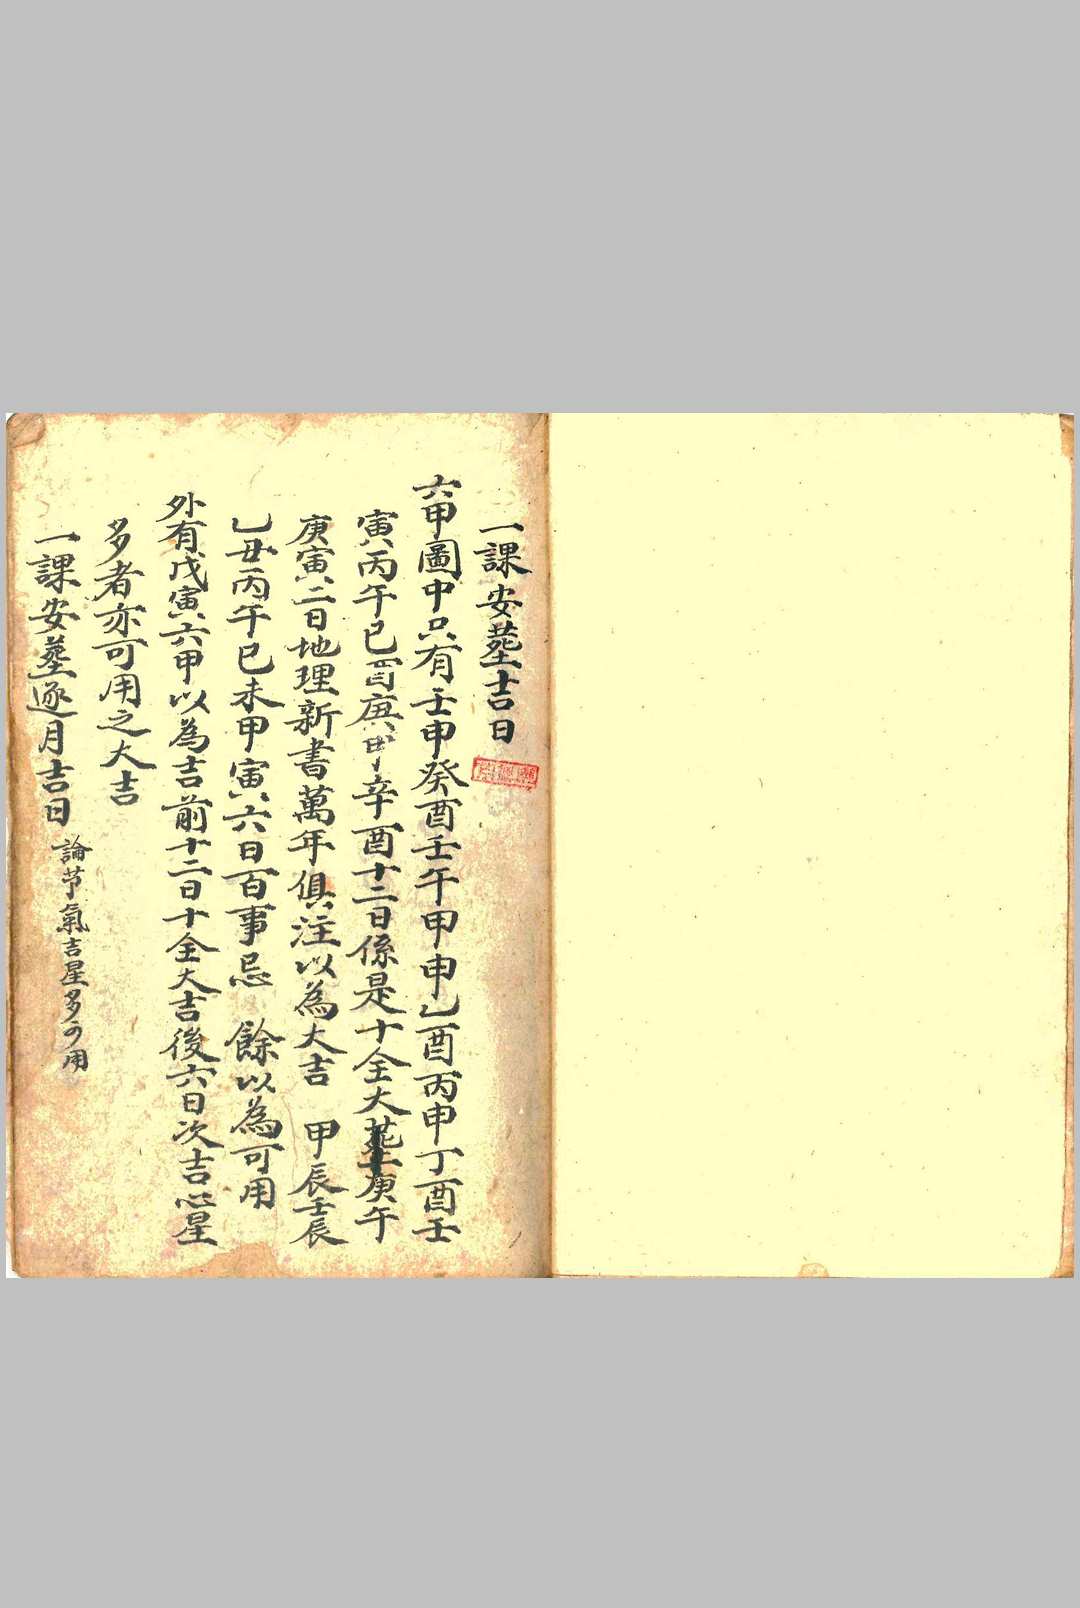 一課安塟吉日
六甲圖中只有壬申癸酉壬午甲申乙酉丙申丁酉壬
寅丙午己酉庚申辛酉十二日係是十全大塟庚午
庚寅二日地理新書萬年俱注以為大吉 甲辰壬辰
乙丑丙午巳未甲寅六日百事忌 餘以為可用
外有戊寅六甲以為吉前十二日十全大吉後六日次吉必星
多者亦可用之大吉
一課安塟逐月吉日 論节氣吉星多可用